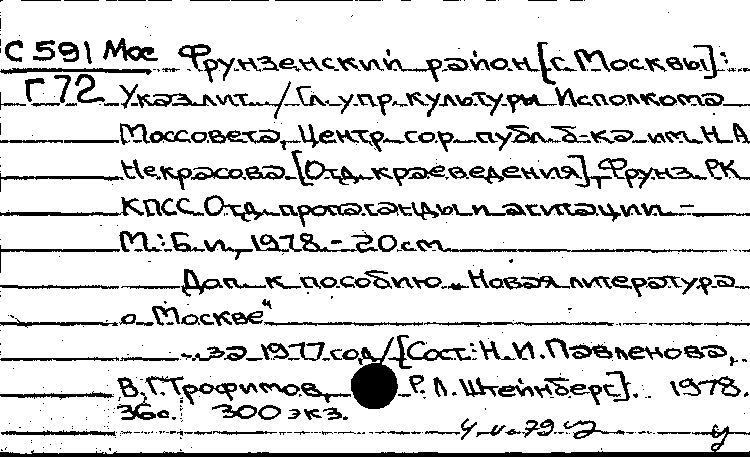 С 591 Мос Фрунзенский район [г. Москвы]:
Г 72 Указ. лит. / Гл. упр. культуры Исполкома
Моссовета, Центр. гор. публ. б-ка им. Н. А.
Некрасова. [Отд. краеведения], Фрунз. РК
КПСС. Отд. пропаганды и агитации. -
М.: Б. и., 1978. - 20 см.
Доп. к пособию „Новая литература
о Москве"
... за 1977 год / [Сост.: Н. И. Павленова,
В. Г. Трофимов, Р. Л. Штейнберг]. 1978.
36 с. 300 экз.